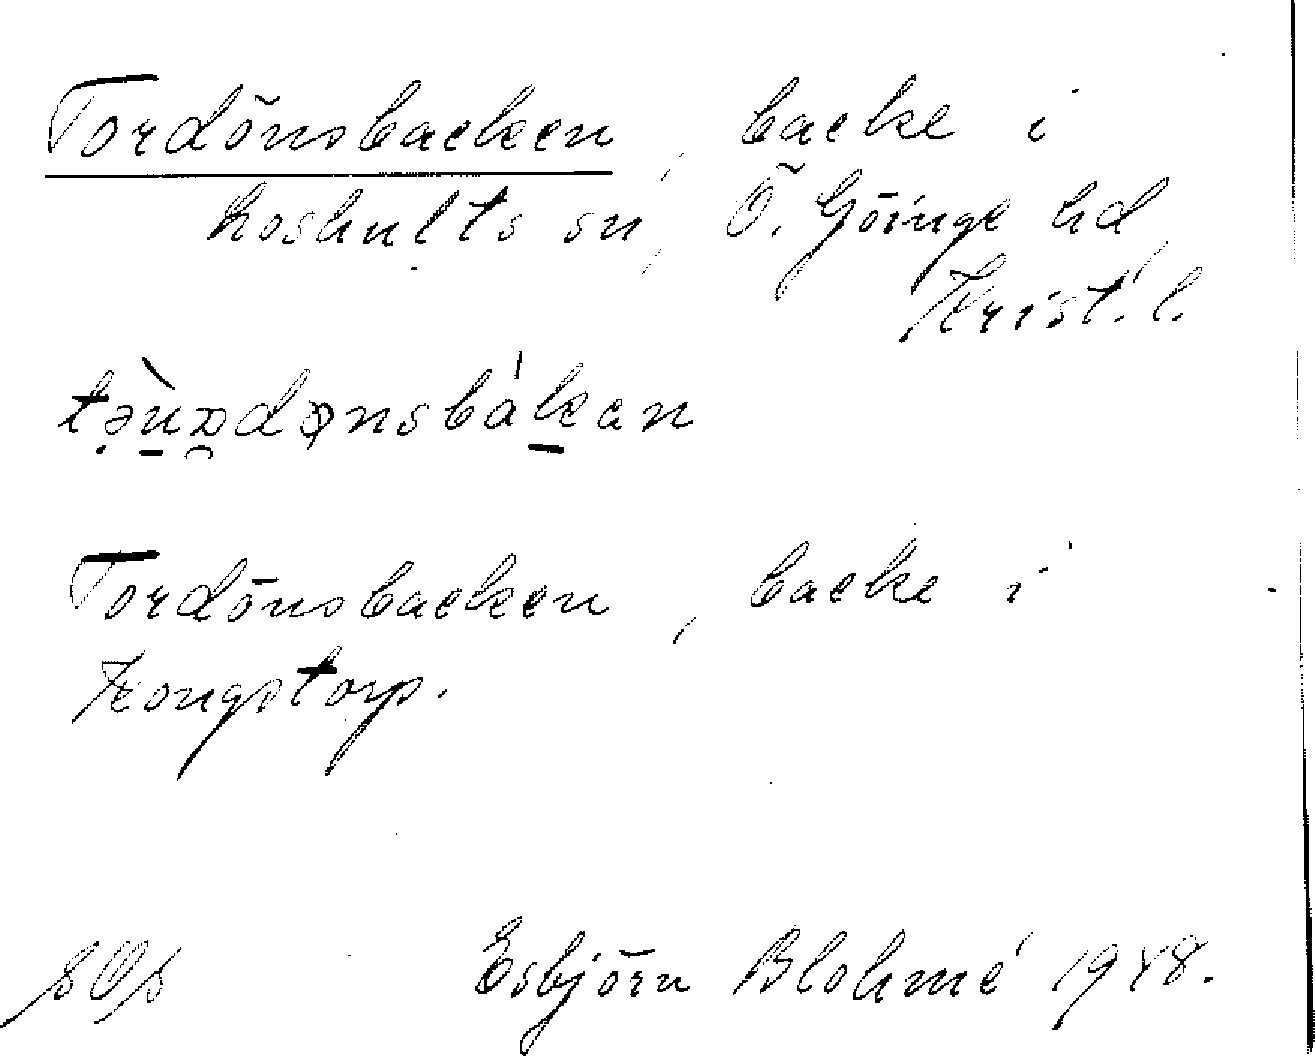 Tordönsbacken, backe i
Loshults sn, Ö. Göinge hd,
Krist. l.
Tordönsbacken, backe i
Kongstorp.
Esbjörn Blohmé 1948.